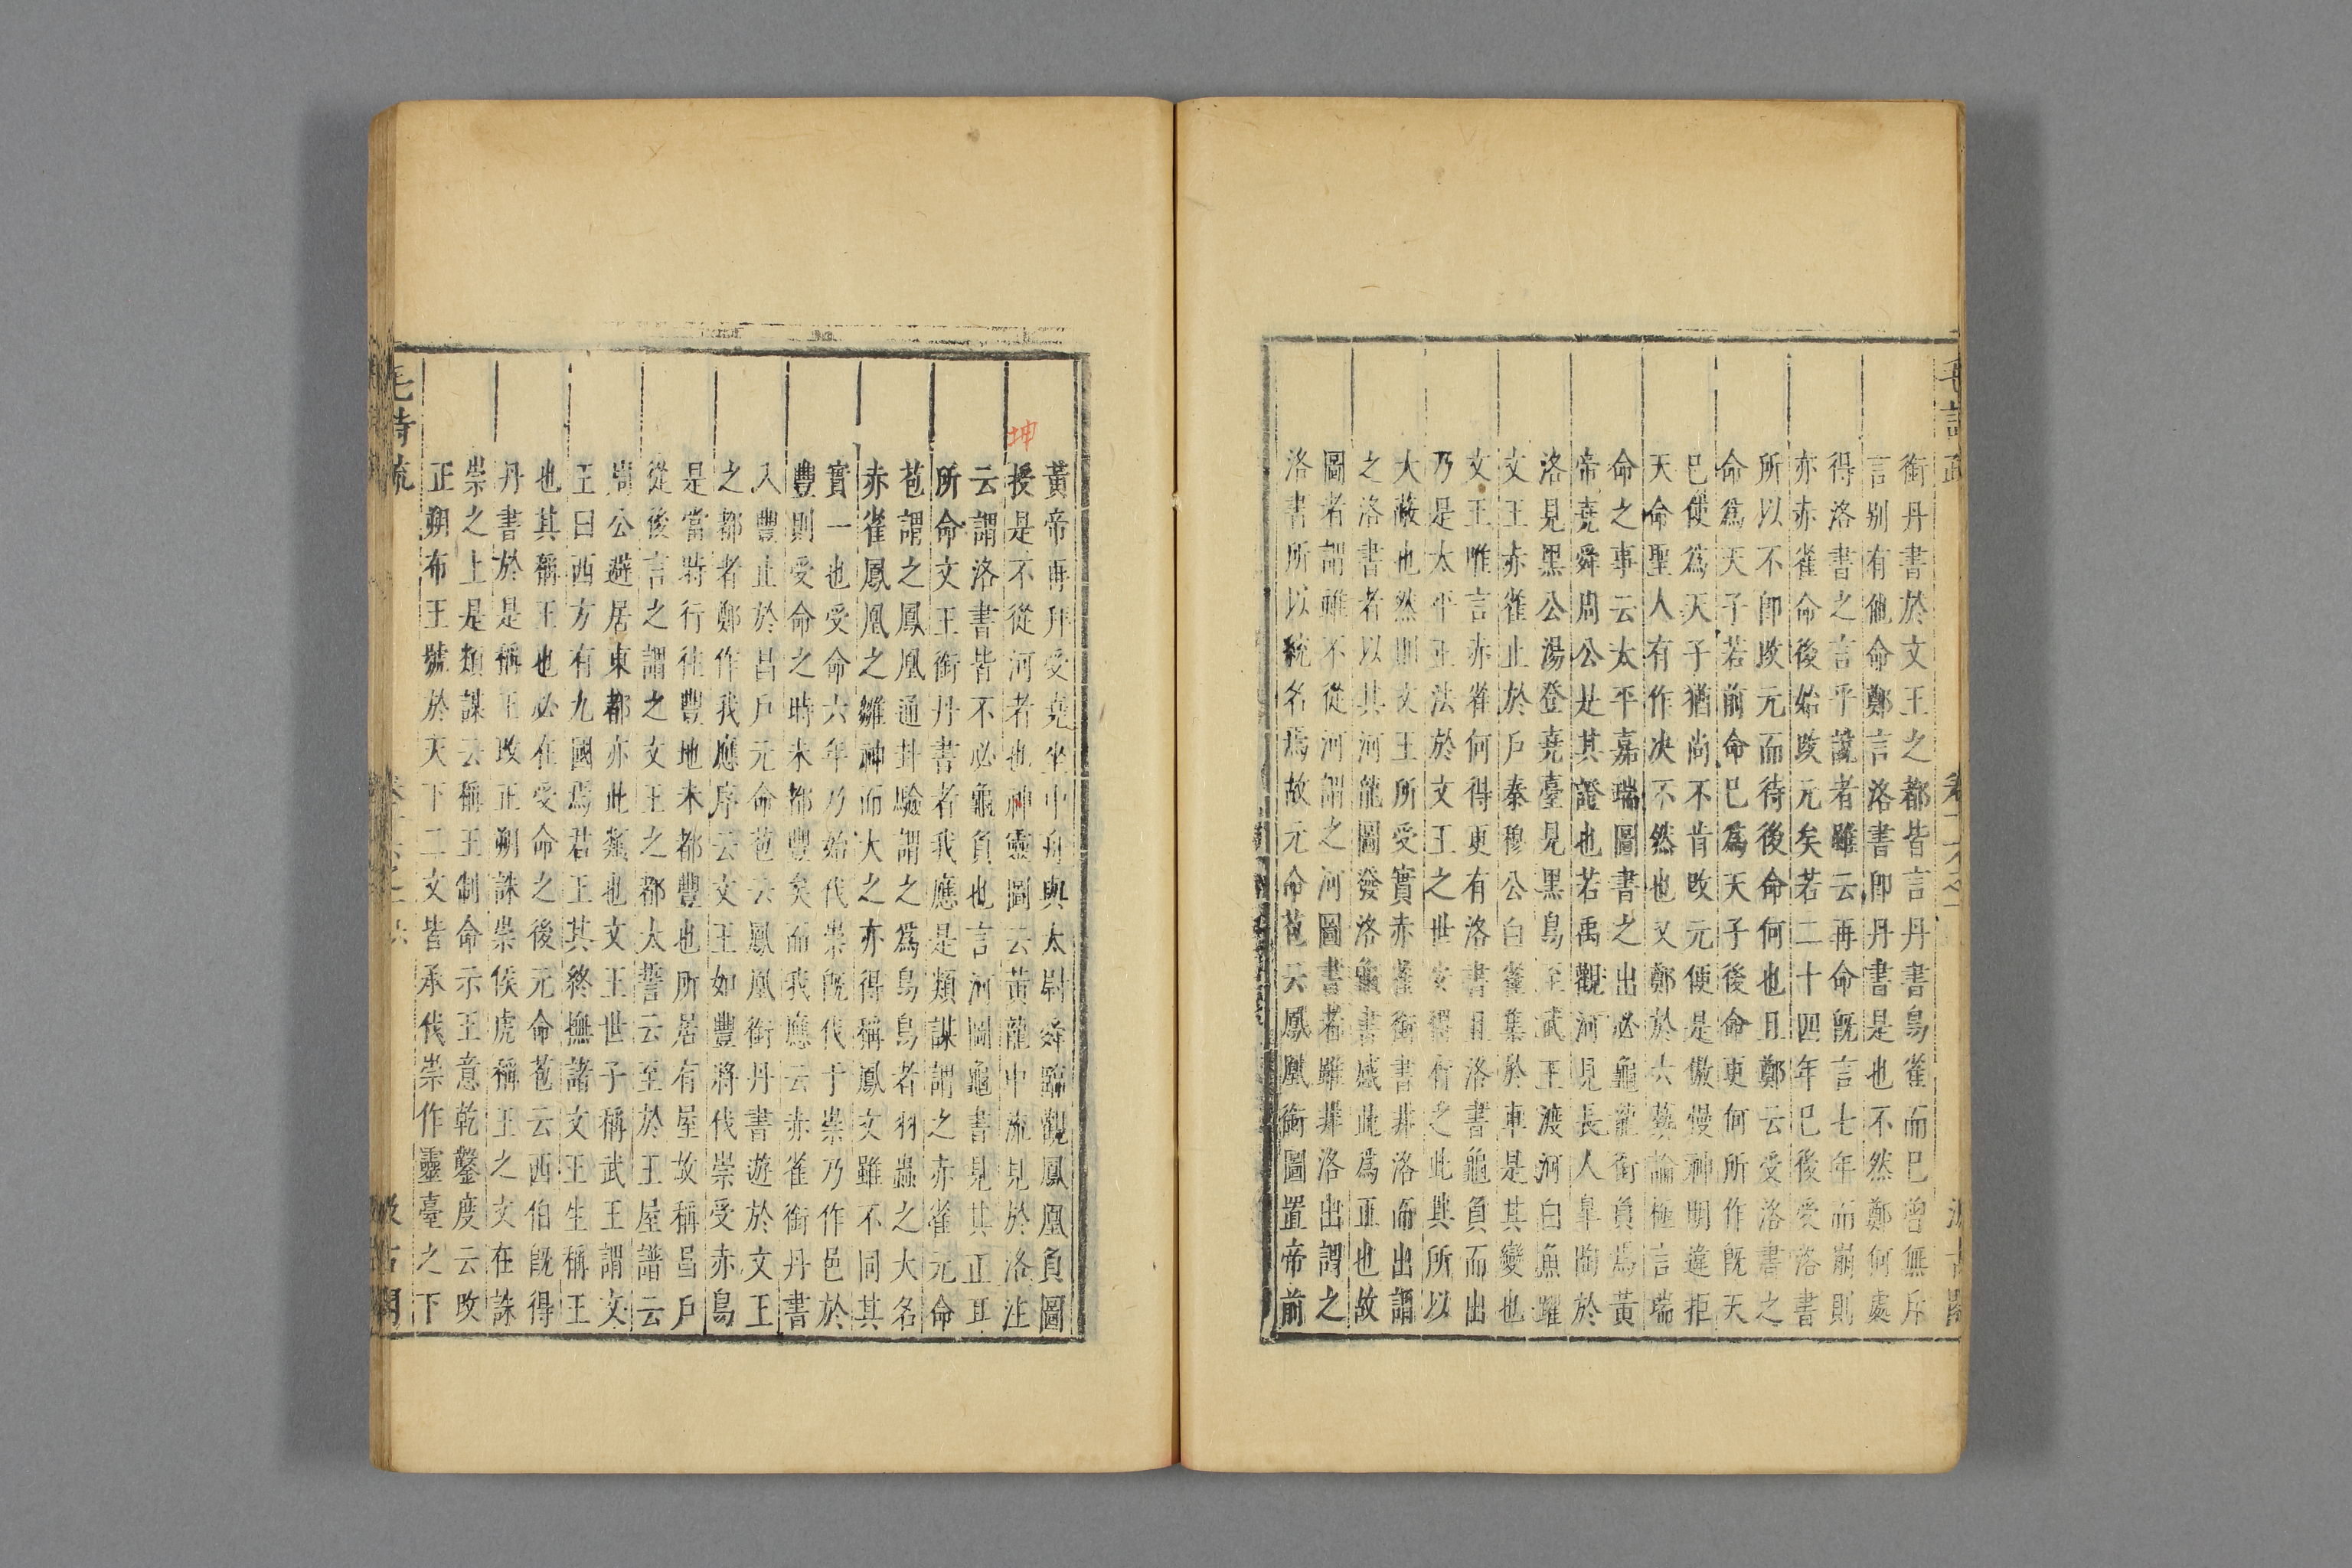 銜丹書於文王之都皆言丹書鳥雀而巳曾無斥
言别有他命鄭言洛書卽丹書是也不然鄭何處
得洛書之言乎說者雖云再命旣言七年而崩則
亦赤雀命後始改元矣若二十四年巳後受洛書
所以不卽改元而待後命何也且鄭云受洛書之
命爲天子若前命巳爲天子後命更何所作旣天
巳使爲天子猶尚不肯改元便是傲慢神明違拒
天命聖人有作决不然也又鄭於六藝論極言瑞
命之事云太平嘉瑞圖書之出必龜龍銜負焉黃
帝堯舜周公是其證也若禹觀河見長人皐陶於
洛見黑公湯登堯臺見黑鳥至武王渡河白魚躍
文王赤雀止於戶秦穆公白雀集於車是其變也
文王唯言赤雀何得更有洛書且洛書龜負而出
乃是太平正法於文王之世安得有之此其所以
大蔽也然則文王所受實赤雀銜書非洛而出謂
之洛書者以其河龍圖發洛龜書感此爲正也故
圖者謂雖不從河謂之河圖書者雖非洛出謂之
洛書所以統名焉故元命苞云鳳凰銜圖置帝前
黃帝再拜受堯坐中舟與太尉舜臨觀鳳凰負圖
授是不從河者也神靈圖云黃龍中流見於洛注
云謂洛書皆不必龜負也言河圖龜書見其正耳
所命文王銜丹書者我應是類謀謂之赤雀元命
苞謂之鳳凰通卦驗謂之爲鳥鳥者羽蟲之大名
赤雀鳳凰之雛神而大之亦得稱鳳文雖不同其
實一也受命六年乃始代崇旣代于崇乃作邑於
豐則受命之時未都豐矣而我應云赤雀銜丹書
入豐止於昌戶元命苞云鳳凰銜丹書遊於文王
之都者鄭作我應序云文王如豐將伐崇受赤鳥
是當時行往豐地未都豐也所居有屋故稱昌戶
從後言之謂之文王之都太誓云至於王屋譜云
周公避居東都亦此類也文王世子稱武王謂文
王曰西方有九國焉君王其終撫諸文王生稱王
也其稱王也必在受命之後元命苞云西伯旣得
丹書於是稱王改正朔誅崇侯虎稱王之文在誅
崇之上是類謀云稱王制命示王意乾鑿度云改
正朔布王號於天下二文皆承伐崇作靈臺之下
毛詩疏
坤